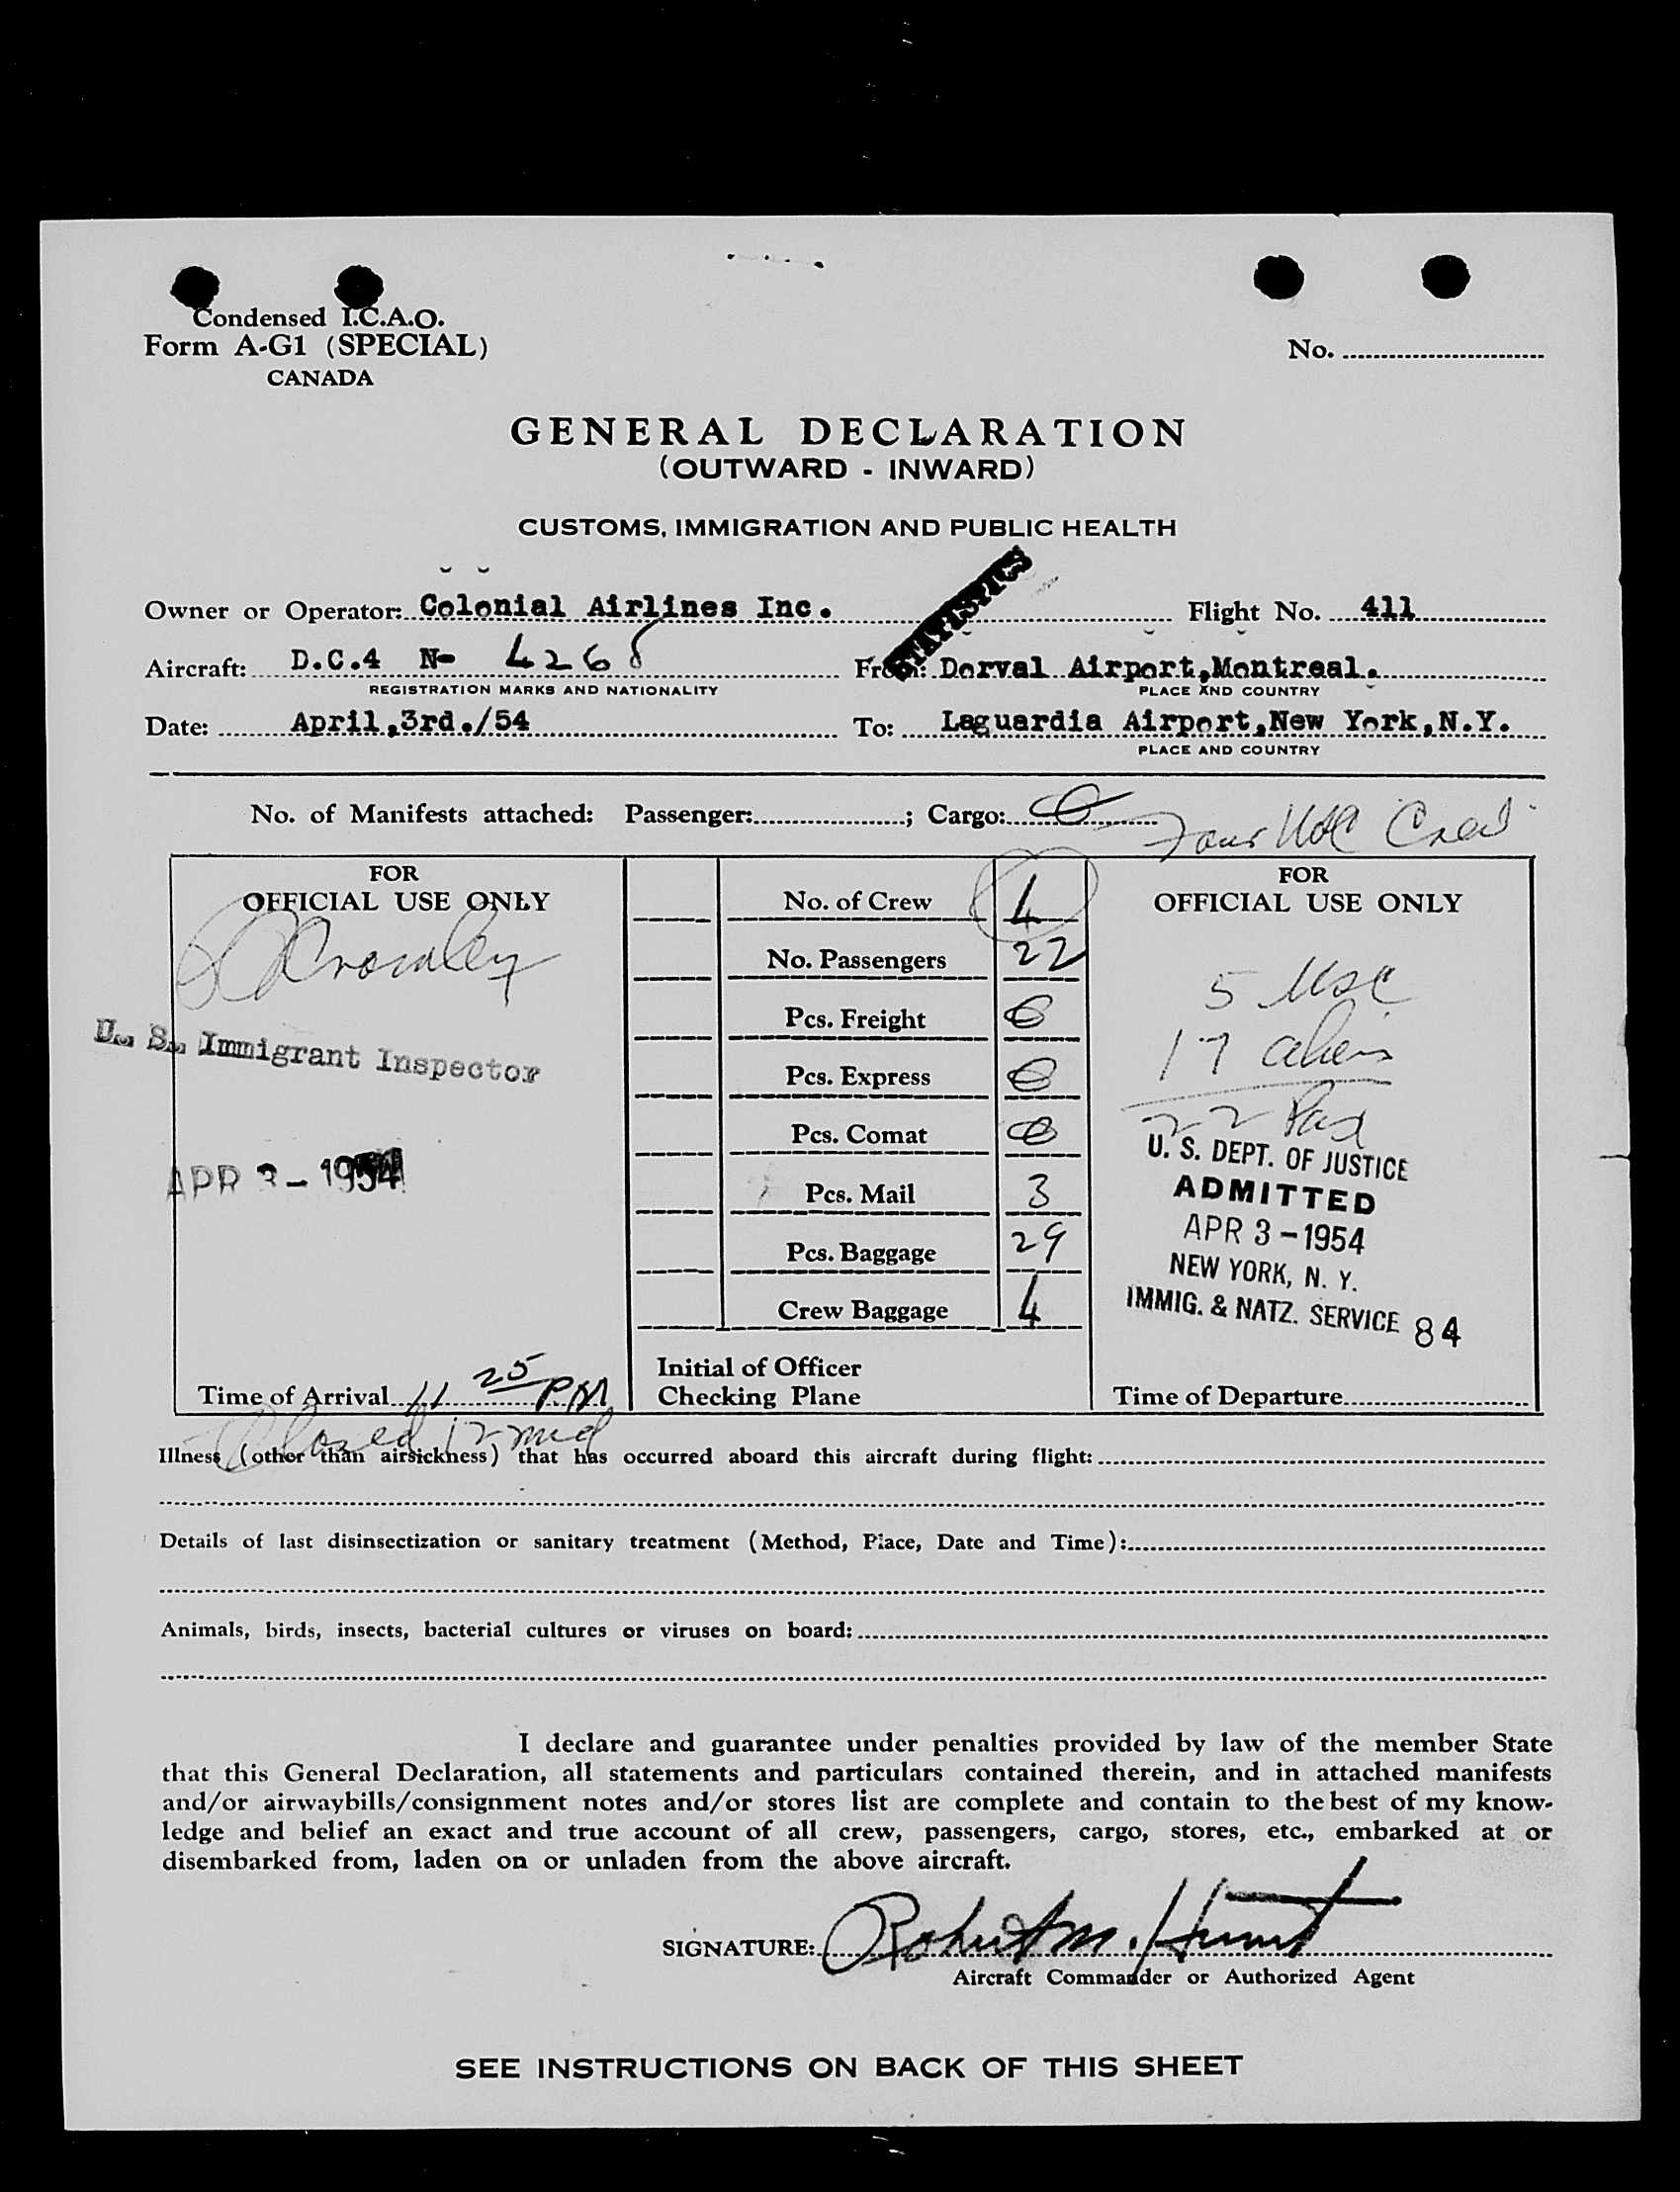 Condensed I.C.A.O.
Form A-G1 (SPECIAL)
CANADA
No.
GENERAL DECLARATION
(OUTWARD - INWARD)
CUSTOMS, IMMIGRATION AND PUBLIC HEALTH
STATISTICS
Owner or Operator: Colonial Airlines Inc. Flight No. 411
Aircraft: D.C.4 N- 4268 From: Dorval Airport,Montreal.
REGISTRATION MARKS AND NATIONALITY PLACE AND COUNTRY
Date: April,3rd./54 To: Laguardia Airport,New York,N.Y.
PLACE AND COUNTRY
No. of Manifests attached: Passenger: ; Cargo: 0
Four USC Crew
FOR
OFFICIAL USE ONLY
Cromley
U. S. Immigrant Inspector
APR 3 - 1954
Time of Arrival 11 25 PM
Closed 12 mid
No. of Crew 4
No. Passengers 22
Pcs. Freight 0
Pcs. Express 0
Pcs. Comat 0
Pcs. Mail 3
Pcs. Baggage 29
Crew Baggage 4
Initial of Officer
Checking Plane
FOR
OFFICIAL USE ONLY
5 USC
17 aliens
22 Pax
U. S. DEPT. OF JUSTICE
ADMITTED
APR 3 - 1954
NEW YORK, N. Y.
IMMIG. & NATZ. SERVICE 84
Time of Departure
Illness (other than airsickness) that has occurred aboard this aircraft during flight:
Details of last disinsectization or sanitary treatment (Method, Place, Date and Time):
Animals, birds, insects, bacterial cultures or viruses on board:
I declare and guarantee under penalties provided by law of the member State
that this General Declaration, all statements and particulars contained therein, and in attached manifests
and/or airwaybills/consignment notes and/or stores list are complete and contain to the best of my know-
ledge and belief an exact and true account of all crew, passengers, cargo, stores, etc., embarked at or
disembarked from, laden on or unladen from the above aircraft.
SIGNATURE: Robert M. Hunt
Aircraft Commander or Authorized Agent
SEE INSTRUCTIONS ON BACK OF THIS SHEET